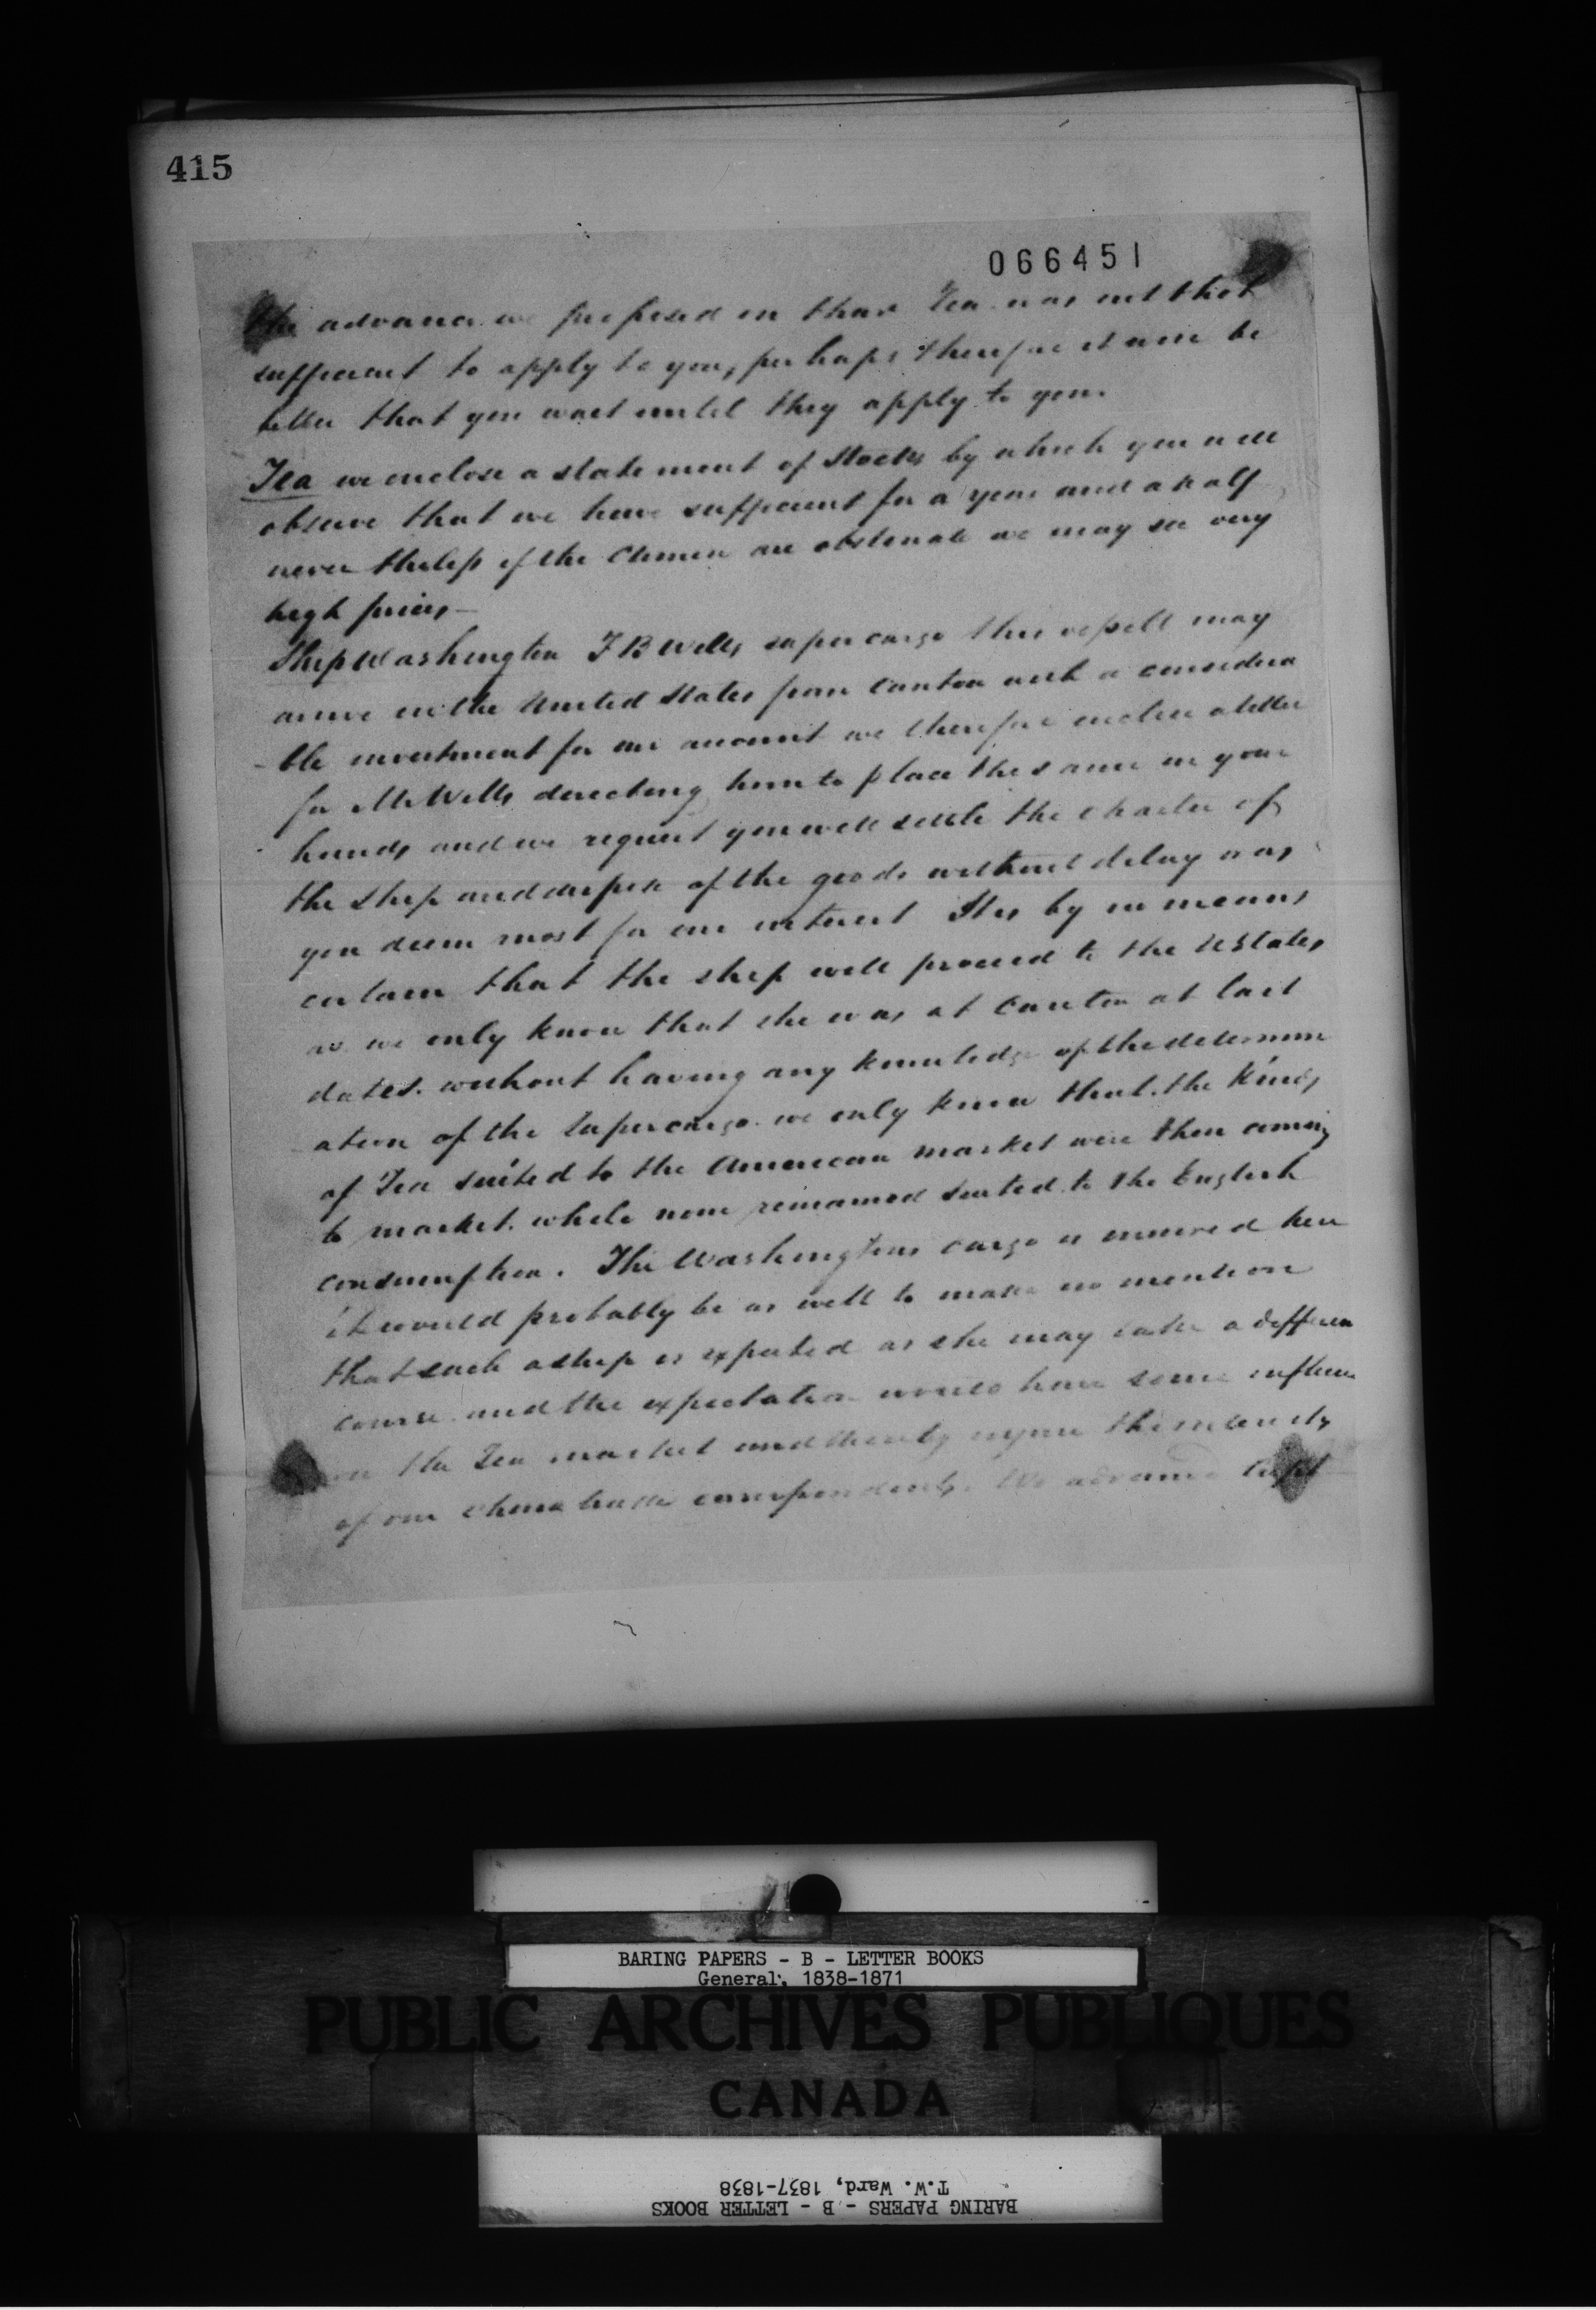 415
066451
the advance we proposed on their Tea was not that
sufficient to apply to you, perhaps therefore it will be
better that you wait until they apply to you.
Tea we enclose a statement of Stocks by which you will
observe that we have sufficient for a year and a half
never theless if the Chinese are obstinate we may see very
high prices –
Ship Washington F B Wells supercargo this vessell may
arrive in the United States from Canton with a considera
- ble investment for our account we therefore enclose a letter
for Mr Wells directing him to place the same in your
hands and we request you will settle the charter of
the ship and dispose of the goods without delay as
you deem most for our interest It is by no means
certain that the ship will proceed to the UStates
as we only know that she was at Canton at last
dates. without having any knowledge of the determin
- ation of the Supercargo. we only know that the kinds
of Tea suited to the American market were then coming
to market. while none remained suited to the English
consumption. The Washingtons cargo is insured here
it would probably be as well to make no mention
that such a ship is expected as she may take a differen
course and the expectation would have some influen
on the Tea market and thereby injure the interests
of our China trade correspondents. We advanced Capt
BARING PAPERS - B - LETTER BOOKS
General, 1838-1871
PUBLIC ARCHIVES PUBLIQUES
CANADA
BARING PAPERS - B - LETTER BOOKS
T.W. Ward, 1837-1838